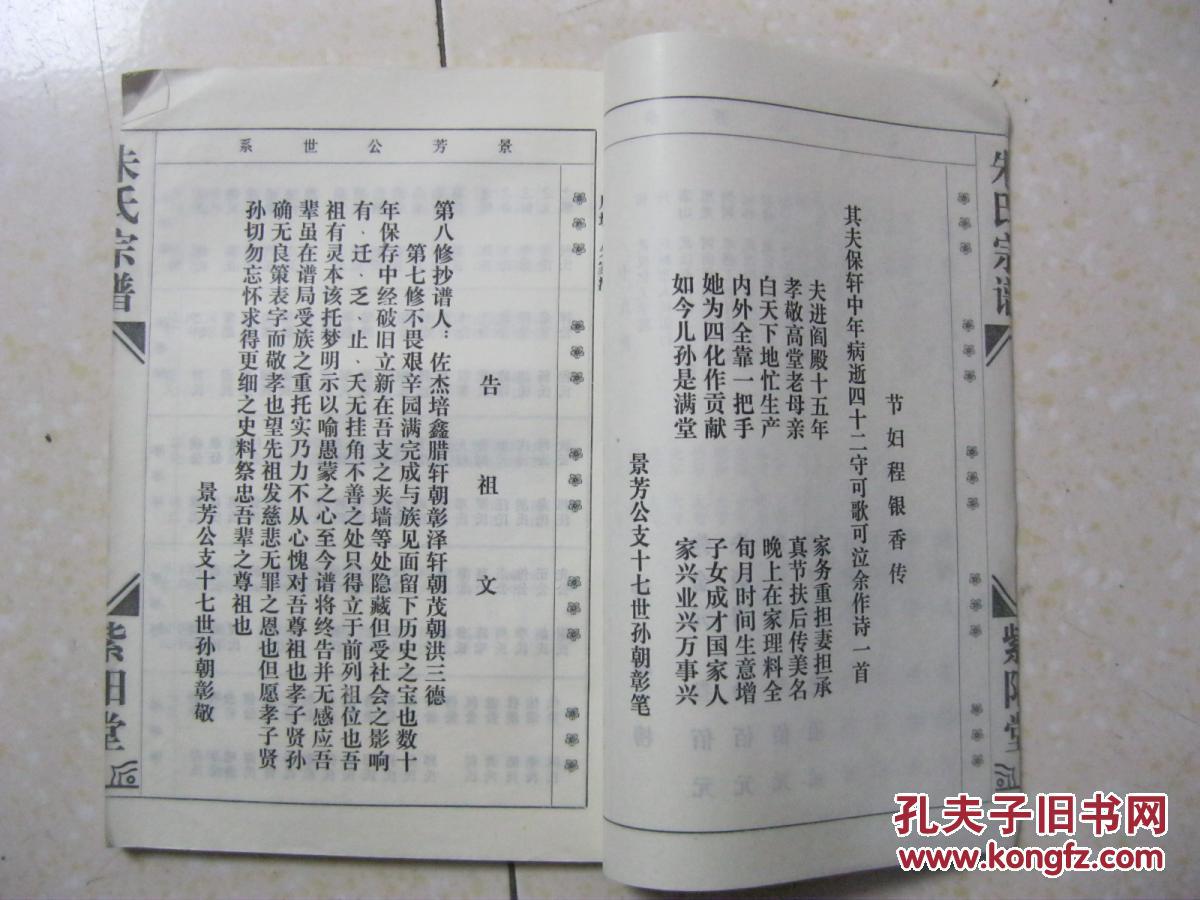 朱氏宗谱
紫阳堂
节妇程银香传
其夫保轩中年病逝四十二守可歌可泣余作诗一首
夫进阎殿十五年 家务重担妻担承
孝敬高堂老母亲 真节扶后传美名
白天下地忙生产 晚上在家理料全
内外全靠一把手 旬月时间生意增
她为四化作贡献 子女成才国家人
如今儿孙是满堂 家兴业兴万事兴
景芳公支十七世孙朝彰笔
景芳公世系
告祖文
第八修抄谱人：佐杰培鑫腊轩朝彰泽轩朝茂朝洪三德
第七修不畏艰辛园满完成与族见面留下历史之宝也数十
年保存中经破旧立新在吾支之夹墙等处隐藏但受社会之影响
有、迁、乏、止、夭无挂角不善之处只得立于前列祖位也吾
祖有灵本该托梦明示以喻愚蒙之心至今谱将终告并无感应吾
辈虽在谱局受族之重托实乃力不从心愧对吾尊祖也孝子贤孙
确无良策表字而敬孝也望先祖发慈悲无罪之恩也但愿孝子贤
孙切勿忘怀求得更细之史料祭忠吾辈之尊祖也
景芳公支十七世孙朝彰敬
朱氏宗谱
紫阳堂
孔夫子旧书网
www.kongfz.com